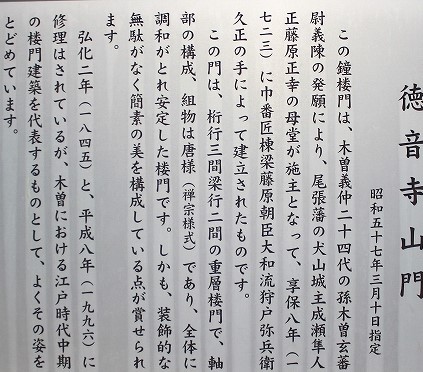 徳音寺山門
昭和五十七年三月十日指定
この鐘楼門は、木曽義仲二十四代の孫木曽玄蕃
尉義陳の発願により、尾張藩の犬山城主成瀬隼人
正藤原正幸の母堂が施主となって、享保八年（一
七二三）に巾番匠棟梁藤原朝臣大和流狩戸弥兵衛
久正の手によって建立されたものです。
この門は、桁行三間梁行二間の重層楼門で、軸
部の構成、組物は唐様（禅宗様式）であり、全体に
調和がとれ安定した楼門です。しかも、装飾的な
無駄がなく簡素の美を構成している点が賞せられ
ます。
弘化二年（一八四五）と、平成八年（一九九六）に
修理はされているが、木曽における江戸時代中期
の楼門建築を代表するものとして、よくその姿を
とどめています。